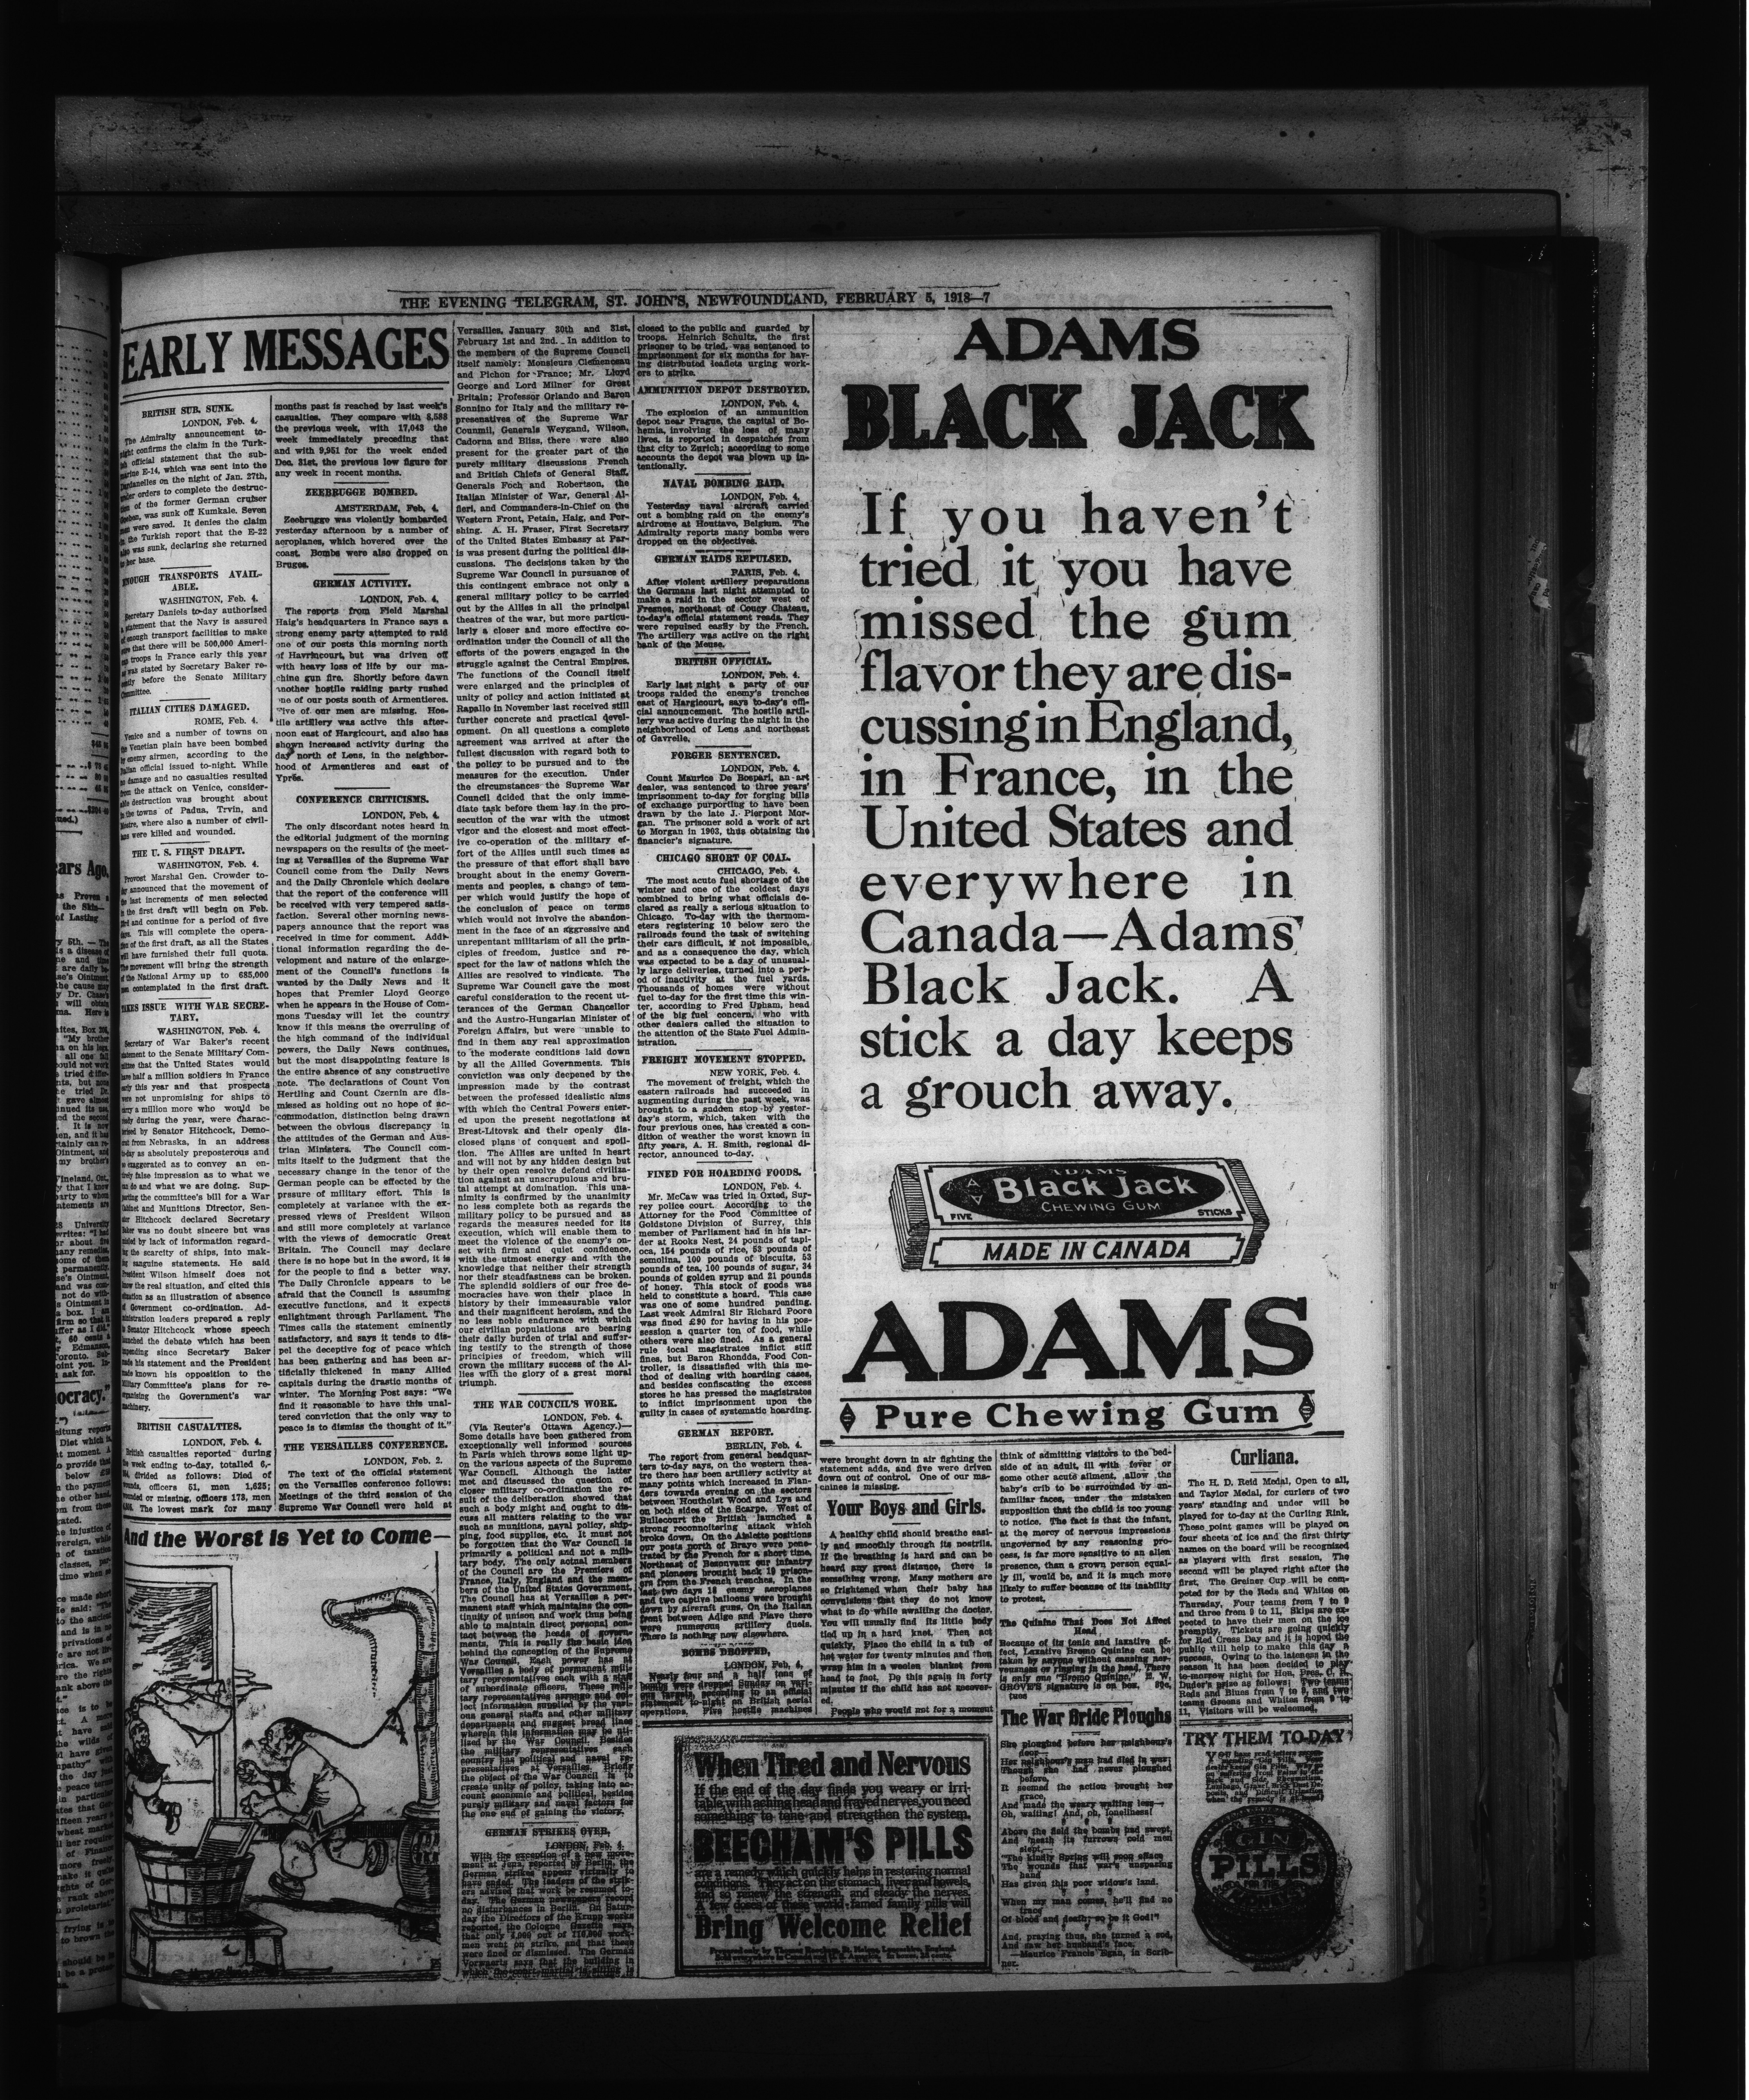 THE EVENING TELEGRAM, ST. JOHN'S, NEWFOUNDLAND, FEBRUARY 5, 1918—7
EARLY MESSAGES
BRITISH SUB. SUNK.
LONDON, Feb. 4.
The Admiralty announcement to-
night confirms the claim in the Turk-
ish official statement that the sub-
marine E-14, which was sent into the
Dardanelles on the night of Jan. 27th,
under orders to complete the destruc-
tion of the former German cruiser
Goeben, was sunk off Kumkale. Seven
men were saved. It denies the claim
in the Turkish report that the E-22
also was sunk, declaring she returned
to her base.
ENOUGH TRANSPORTS AVAIL-
ABLE.
WASHINGTON, Feb. 4.
Secretary Daniels to-day authorised
a statement that the Navy is assured
of enough transport facilities to make
sure that there will be 500,000 Ameri-
can troops in France early this year
as was stated by Secretary Baker re-
cently before the Senate Military
Committee.
ITALIAN CITIES DAMAGED.
ROME, Feb. 4.
Venice and a number of towns on
the Venetian plain have been bombed
by enemy airmen, according to the
Italian official issued to-night. While
no damage and no casualties resulted
from the attack on Venice, consider-
able destruction was brought about
in the towns of Padua, Trvin, and
Mestre, where also a number of civil-
ians were killed and wounded.
THE U. S. FIRST DRAFT.
WASHINGTON, Feb. 4.
Provost Marshal Gen. Crowder to-
day announced that the movement of
the last increments of men selected
in the first draft will begin on Feb.
23rd and continue for a period of five
days. This will complete the opera-
tion of the first draft, as all the States
will have furnished their full quota.
The movement will bring the strength
of the National Army up to 685,000
men contemplated in the first draft.
TAKES ISSUE WITH WAR SECRE-
TARY.
WASHINGTON, Feb. 4.
Secretary of War Baker's recent
statement to the Senate Military Com-
mittee that the United States would
have half a million soldiers in France
early this year and that prospects
were not unpromising for ships to
carry a million more who would be
ready during the year, were charac-
terised by Senator Hitchcock, Demo-
crat from Nebraska, in an address
to-day as absolutely preposterous and
so exaggerated as to convey an en-
tirely false impression as to what we
can do and what we are doing. Sup-
porting the committee's bill for a War
Cabinet and Munitions Director, Sen-
ator Hitchcock declared Secretary
Baker was no doubt sincere but was
misled by lack of information regard-
ing the scarcity of ships, into mak-
ing sanguine statements. He said
President Wilson himself does not
know the real situation, and cited this
situation as an illustration of absence
of Government co-ordination. Ad-
ministration leaders prepared a reply
to Senator Hitchcock whose speech
launched the debate which has been
impending since Secretary Baker
made his statement and the President
made known his opposition to the
Military Committee's plans for re-
organising the Government's war
machinery.
BRITISH CASUALTIES.
LONDON, Feb. 4.
British casualties reported during
the week ending to-day, totalled 6,-
divided as follows: Died of
wounds, officers 51, men 1,625;
wounded or missing, officers 173, men
The lowest mark for many
months past is reached by last week's
casualties. They compare with 8,588
the previous week, with 17,043 the
week immediately preceding that
and with 9,951 for the week ended
Dec. 31st, the previous low figure for
any week in recent months.
ZEEBRUGGE BOMBED.
AMSTERDAM, Feb, 4.
Zeebrugge was violently bombarded
yesterday afternoon by a number of
aeroplanes, which hovered over the
coast. Bombs were also dropped on
Bruges.
GERMAN ACTIVITY.
LONDON, Feb. 4.
The reports from Field Marshal
Haig's headquarters in France says a
strong enemy party attempted to raid
one of our posts this morning north
of Havrincourt, but was driven off
with heavy loss of life by our ma-
chine gun fire. Shortly before dawn
another hostile raiding party rushed
one of our posts south of Armentieres.
Five of our men are missing. Hos-
tile artillery was active this after-
noon east of Hargicourt, and also has
shown increased activity during the
day north of Lens, in the neighbor-
hood of Armentieres and east of
Ypres.
CONFERENCE CRITICISMS.
LONDON, Feb. 4.
The only discordant notes heard in
the editorial judgment of the morning
newspapers on the results of the meet-
ing at Versailles of the Supreme War
Council come from the Daily News
and the Daily Chronicle which declare
that the report of the conference will
be received with very tempered satis-
faction. Several other morning news-
papers announce that the report was
received in time for comment. Addi-
tional information regarding the de-
velopment and nature of the enlarge-
ment of the Council's functions is
wanted by the Daily News and it
hopes that Premier Lloyd George
when he appears in the House of Com-
mons Tuesday will let the country
know if this means the overruling of
the high command of the individual
powers, the Daily News continues,
but the most disappointing feature is
the entire absence of any constructive
note. The declarations of Count Von
Hertling and Count Czernin are dis-
missed as holding out no hope of ac-
commodation, distinction being drawn
between the obvious discrepancy in
the attitudes of the German and Aus-
trian Ministers. The Council com-
mits itself to the judgment that the
necessary change in the tenor of the
German people can be effected by the
pressure of military effort. This is
completely at variance with the ex-
pressed views of President Wilson
and still more completely at variance
with the views of democratic Great
Britain. The Council may declare
there is no hope but in the sword, it is
for the people to find a better way.
The Daily Chronicle appears to be
afraid that the Council is assuming
executive functions, and it expects
enlightment through Parliament. The
Times calls the statement eminently
satisfactory, and says it tends to dis-
pel the deceptive fog of peace which
has been gathering and has been ar-
tificially thickened in many Allied
capitals during the drastic months of
winter. The Morning Post says: "We
find it reasonable to have this unal-
tered conviction that the only way to
peace is to dismiss the thought of it."
THE VERSAILLES CONFERENCE.
LONDON, FEB. 2.
The text of the official statement
on the Versailles conference follows:
Meetings of the third session of the
Supreme War Council were held at
And the Worst is Yet to Come—
Versailles, January 30th and 31st,
February 1st and 2nd. In addition to
the members of the Supreme Council
itself namely: Monsieurs Clemenceau
and Pichon for France; Mr. Lloyd
George and Lord Milner for Great
Britain; Professor Orlando and Baron
Sonnino for Italy and the military re-
presenatives of the Supreme War
Counmil, Generals Weygand, Wilson,
Cadorna and Bliss, there were also
present for the greater part of the
purely military discussions French
and British Chiefs of General Staff,
Generals Foch and Robertson, the
Italian Minister of War, General Al-
fieri, and Commanders-in-Chief on the
Western Front, Petain, Haig, and Per-
shing. A. H. Fraser, First Secretary
of the United States Embassy at Par-
is was present during the political dis-
cussions. The decisions taken by the
Supreme War Council in pursuance of
this contingent embrace not only a
general military policy to be carried
out by the Allies in all the principal
theatres of the war, but more particu-
larly a closer and more effective co-
ordination under the Council of all the
efforts of the powers engaged in the
struggle against the Central Empires.
The functions of the Council itself
were enlarged and the principles of
unity of policy and action initiated at
Rapallo in November last received still
further concrete and practical devel-
opment. On all questions a complete
agreement was arrived at after the
fullest discussion with regard both to
the policy to be pursued and to the
measures for the execution. Under
the circumstances the Supreme War
Council dcided that the only imme-
diate task before them lay in the pro-
secution of the war with the utmost
vigor and the closest and most effect-
ive co-operation of the military ef-
fort of the Allies until such times as
the pressure of that effort shall have
brought about in the enemy Govern-
ments and peoples, a change of tem-
per which would justify the hope of
the conclusion of peace on terms
which would not involve the abandon-
ment in the face of an aggressive and
unrepentant militarism of all the prin-
ciples of freedom, justice and re-
spect for the law of nations which the
Allies are resolved to vindicate. The
Supreme War Council gave the most
careful consideration to the recent ut-
terances of the German Chancellor
and the Austro-Hungarian Minister of
Foreign Affairs, but were unable to
find in them any real approximation
to the moderate conditions laid down
by all the Allied Governments. This
conviction was only deepened by the
impression made by the contrast
between the professed idealistic aims
with which the Central Powers enter-
ed upon the present negotiations at
Brest-Litovsk and their openly dis-
closed plans of conquest and spoil-
tion. The Allies are united in heart
and will not by any hidden design but
by their open resolve defend civiliza-
tion against an unscrupulous and bru-
tal attempt at domination. This una-
nimity is confirmed by the unanimity
no less complete both as regards the
military policy to be pursued and as
regards the measures needed for its
execution, which will enable them to
meet the violence of the enemy's on-
set with firm and quiet confidence,
with the utmost energy and with the
knowledge that neither their strength
nor their steadfastness can be broken.
The splendid soldiers of our free de-
mocracies have won their place in
history by their immeasurable valor
and their magnificent heroism, and the
no less noble endurance with which
our civilian populations are bearing
their daily burden of trial and suffer-
ing testify to the strength of those
principles of freedom, which will
crown the military success of the Al-
lies with the glory of a great moral
triumph.
THE WAR COUNCIL'S WORK.
LONDON, Feb. 4.
(Via Reuter's Ottawa Agency.)—
Some details have been gathered from
exceptionally well informed sources
in Paris which throws some light up-
on the various aspects of the Supreme
War Council. Although the latter
met and discussed the question of
closer military co-ordination the re-
sult of the deliberation showed that
such a body might and ought to dis-
cuss all matters relating to the war
such as munitions, naval policy, ship-
ping, food supplies, etc. It must not
be forgotten that the War Council is
primarily a political and not a mili-
tary body. The only actual members
of the Council are the Premiers of
France, Italy, England and the mem-
bers of the United States Government.
The Council has at Versailles a per-
manent staff which maintains the con-
tinuity of unison and work thus being
able to maintain direct personal con-
tact between the heads of govern-
ments. This is really the basis idea
behind the conception of the Supreme
War Council. Each power has at
Versailles a body of permanent mili-
tary representatives each with a staff
of subordinate officers. These mili-
tary representatives arrange and col-
lect information supplied by the vari-
ous general staffs and other military
departments and suggest broad lines
wherein this information may be uti-
lized by the War Council. Besides
the military representatives each
country has political and naval re-
presentatives at Versailles. Briefly
the object of the War Council is to
create unity of policy, taking into ac-
count economic and political, besides
purely military and naval factors for
the one end of gaining the victory.
GERMAN STRIKES OVER.
LONDON, Feb. 4.
With the exception of a new move-
ment at Jena, reported by Berlin, the
German strikes appear virtually to
have ended. The leaders of the strik-
ers advised that work be resumed to-
day. The German newspapers record
no disturbances in Berlin. On Satur-
day the Directors of the Krupp works
reported, the Cologne Gazette says,
that only out of work-
men went on strike, and that these
were fined or dismissed. The German
Vorwaerts says that the building in
which the court-martial is sitting is
closed to the public and guarded by
troops. Heinrich Schultz, the first
prisoner to be tried, was sentenced to
imprisonment for six months for hav-
ing distributed leaflets urging work-
ers to strike.
AMMUNITION DEPOT DESTROYED.
LONDON, Feb. 4.
The explosion of an ammunition
depot near Prague, the capital of Bo-
hemia, involving the loss of many
lives, is reported in despatches from
that city to Zurich; according to some
accounts the depot was blown up in-
tentionally.
NAVAL BOMBING RAID.
LONDON, Feb. 4.
Yesterday naval aircraft carried
out a bombing raid on the enemy's
airdrome at Houttave, Belgium. The
Admiralty reports many bombs were
dropped on the objectives.
GERMAN RAIDS REPULSED.
PARIS, Feb. 4.
After violent artillery preparations
the Germans last night attempted to
make a raid in the sector west of
Fresnes, northeast of Coucy Chateau,
to-day's official statement reads. They
were repulsed easily by the French.
The artillery was active on the right
bank of the Meuse.
BRITISH OFFICIAL.
LONDON, Feb. 4.
Early last night a party of our
troops raided the enemy's trenches
east of Hargicourt, says to-day's offi-
cial announcement. The hostile artil-
lery was active during the night in the
neighborhood of Lens and northeast
of Gavrelle.
FORGER SENTENCED.
LONDON, Feb. 4.
Count Maurice De Bospari, an art
dealer, was sentenced to three years'
imprisonment to-day for forging bills
of exchange purporting to have been
drawn by the late J. Pierpont Mor-
gan. The prisoner sold a work of art
to Morgan in 1903, thus obtaining the
financier's signature.
CHICAGO SHORT OF COAL.
CHICAGO, Feb. 4.
The most acute fuel shortage of the
winter and one of the coldest days
combined to bring what officials de-
clared as really a serious situation to
Chicago. To-day with the thermom-
eters registering 10 below zero the
railroads found the task of switching
their cars difficult, if not impossible,
and as a consequence the day, which
was expected to be a day of unusual-
ly large deliveries, turned into a peri-
od of inactivity at the fuel yards.
Thousands of homes were without
fuel to-day for the first time this win-
ter, according to Fred Upham, head
of the big fuel concern, who with
other dealers called the situation to
the attention of the State Fuel Admin-
istration.
FREIGHT MOVEMENT STOPPED.
NEW YORK, Feb. 4.
The movement of freight, which the
eastern railroads had succeeded in
augmenting during the past week, was
brought to a sudden stop by yester-
day's storm, which, taken with the
four previous ones, has created a con-
dition of weather the worst known in
fifty years, A. H. Smith, regional di-
rector, announced to-day.
FINED FOR HOARDING FOODS.
LONDON, Feb. 4.
Mr. McCaw was tried in Oxted, Sur-
rey police court. According to the
Attorney for the Food Committee of
Goldstone Division of Surrey, this
member of Parliament had in his lar-
der at Rooks Nest, 24 pounds of tapi-
oca, 154 pounds of rice, 53 pounds of
semolina, 100 pounds of biscuits, 53
pounds of tea, 100 pounds of sugar, 34
pounds of golden syrup and 21 pounds
of honey. This stock of goods was
held to constitute a hoard. This case
was one of some hundred pending.
Last week Admiral Sir Richard Poore
was fined £90 for having in his pos-
session a quarter ton of food, while
others were also fined. As a general
rule local magistrates inflict stiff
fines, but Baron Rhondda, Food Con-
troller, is dissatisfied with this me-
thod of dealing with hoarding cases,
and besides confiscating the excess
stores he has pressed the magistrates
to inflict imprisonment upon the
guilty in cases of systematic hoarding.
GERMAN REPORT.
BERLIN, Feb. 4.
The report from general headquar-
ters to-day says, on the western thea-
tre there has been artillery activity at
many points which increased in Flan-
ders towards evening on the sectors
between Houtholst Wood and Lys and
on both sides of the Scarpe. West of
Bullecourt the British launched a
strong reconnoitering attack which
broke down. On the Ailette positions
our posts north of Braye were pene-
trated by the French for a short time.
Northeast of Bezonvaux our infantry
and pioneers brought back 19 prison-
ers from the French trenches. In the
last two days 18 enemy aeroplanes
and two captive balloons were brought
down by aircraft guns. On the Italian
front between Adige and Piave there
were numerous artillery duels.
There is nothing new elsewhere.
BOMBS DROPPED.
LONDON, Feb. 4.
Nearly four and a half tons of
bombs were dropped Sunday on vari-
ous targets, according to an official
statement to-night on British aerial
operations. Five hostile machines
ADAMS
BLACK JACK
If you haven't
tried it you have
missed the gum
flavor they are dis-
cussing in England,
in France, in the
United States and
everywhere in
Canada—Adams
Black Jack. A
stick a day keeps
a grouch away.
ADAMS
Black Jack
CHEWING GUM
FIVE STICKS
MADE IN CANADA
ADAMS
Pure Chewing Gum
were brought down in air fighting the
statement adds, and five were driven
down out of control. One of our ma-
chines is missing.
Your Boys and Girls.
A healthy child should breathe easi-
ly and smoothly through its nostrils.
If the breathing is hard and can be
heard any great distance, there is
something wrong. Many mothers are
so frightened when their baby has
convulsions that they do not know
what to do while awaiting the doctor.
You will usually find its little body
tied up in a hard knot. Then act
quickly. Place the child in a tub of
hot water for twenty minutes and then
wrap him in a woolen blanket from
head to foot. Do this again in forty
minutes if the child has not recover-
ed.
People who would not for a moment
think of admitting visitors to the bed-
side of an adult, ill with fever or
some other acute ailment, allow the
baby's crib to be surrounded by un-
familiar faces, under the mistaken
supposition that the child is too young
to notice. The fact is that the infant,
at the mercy of nervous impressions
ungoverned by any reasoning pro-
cess, is far more sensitive to an alien
presence, than a grown person equal-
ly ill, would be, and it is much more
likely to suffer because of its inability
to protest.
The Quinine That Does Not Affect
Head
Because of its tonic and laxative ef-
fect, Laxative Bromo Quinine can be
taken by anyone without causing ner-
vousness or ringing in the head. There
is only one "Bromo Quinine." E. W.
GROVE'S signature is on box. 30c.
The War Bride Ploughs
She ploughed before her neighbour's
door—
Her neighbour's man had died in war;
Though she had never ploughed
before,
It seemed the action brought her
grace,
And made the weary waiting less—
Oh, waiting! And, oh, loneliness!
Above the field the bombs had swept,
And 'neath its furrows cold men
slept,—
"The kindly Spring will soon efface
The wounds that war's unsparing
hand
Has given this poor widow's land.
When my man comes, he'll find no
trace
Of blood and death; so be it God!"
And, praying thus, she turned a sod,
And saw her husband's face.
—Maurice Francis Egan, in Scrib-
ner.
Curliana.
The H. D. Reid Medal, Open to all,
and Taylor Medal, for curlers of two
years' standing and under will be
played for to-day at the Curling Rink.
These point games will be played on
four sheets of ice and the first thirty
names on the board will be recognized
as players with first session. The
second will be played right after the
first. The Greiner Cup will be com-
peted for by the Reds and Whites on
Thursday. Four teams from 7 to 9
and three from 9 to 11. Skips are ex-
pected to have their men on the ice
promptly. Tickets are going quickly
for Red Cross Day and it is hoped the
public will help to make this day a
success. Owing to the lateness in the
season it has been decided to play
to-morrow night for Hon. Pres. C. R.
Duder's prize as follows: Two teams
Reds and Blues from 7 to 9, and two
teams Greens and Whites from 9 to
11. Visitors will be welcomed.
When Tired and Nervous
If the end of the day finds you weary or irri-
table, with aching head and frayed nerves, you need
something to tone and strengthen the system.
BEECHAM'S PILLS
are a remedy which quickly helps in restoring normal
conditions. They act on the stomach, liver and bowels,
and so renew the strength, and steady the nerves.
A few doses of these world-famed family pills will
Bring Welcome Relief
TRY THEM TO-DAY
GIN
PILLS